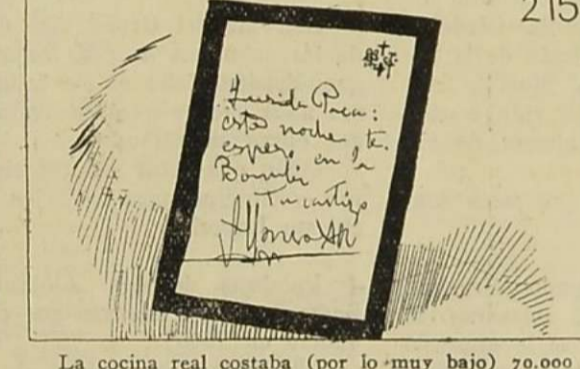 215
Querida Paca:
esta noche te
espero en la
Bombi
Tu castizo
Alfonso XII
La cocina real costaba (por lo muy bajo) 70.000